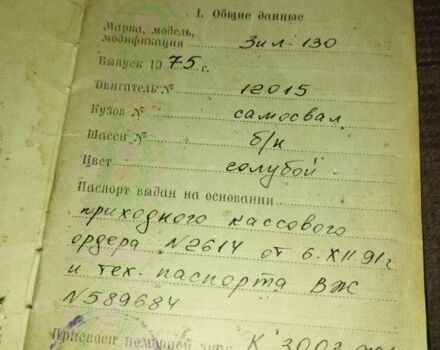 I. Общие данные
Марка, модель,
модификация Зил-130
Выпуск 1975 г.
Двигатель № 12015
Кузов № самосвал
Шасси № б/н
Цвет голубой
Паспорт выдан на основании
приходного кассового
ордера №2614 от 6.XII.91г
и тех. паспорта ВЖ
№589684
Присвоен номерной знак К 3003